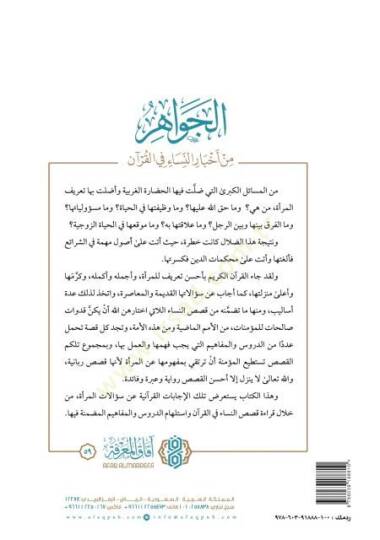 الجواهر
من أخبار النساء في القرآن
من المسائل الكبرى التي ضلَّت فيها الحضارة الغربية وأضلت بها تعريف
المرأة، من هي؟ وما حق الله عليها؟ وما وظيفتها في الحياة؟ وما مسؤولياتها؟
وما الفرق بينها وبين الرجل؟ وما علاقتها به؟ وما موقعها في الحياة الزوجية؟
ونتيجة هذا الضلال كانت خطرة، حيث أتت على أصول مهمة في الشرائع
فألغتها وأتت على محكمات الدين فكسرتها.
ولقد جاء القرآن الكريم بأحسن تعريف للمرأة، وأجمله وأكمله، وكرَّمها
وأعلى منزلتها، كما أجاب عن سؤالاتها القديمة والمعاصرة، واتخذ لذلك عدة
أساليب، ومنها ما تضمَّنه من قصص النساء اللاتي اختارهن الله أنْ يكنَّ قدوات
صالحات للمؤمنات، من الأمم الماضية ومن هذه الأمة، وتجد كل قصة تحمل
عددًا من الدروس والمفاهيم التي يجب فهمها والعمل بها، وبمجموع تلكم
القصص تستطيع المؤمنة أنْ ترتقي بمفهومها عن المرأة لأنها قصص ربانية،
والله تعالى لا ينزل إلا أحسن القصص رواية وعبرة وفائدة.
وهذا الكتاب يستعرض تلك الإجابات القرآنية عن سؤالات المرأة، من
خلال قراءة قصص النساء في القرآن واستلهام الدروس والمفاهيم المضمنة فيها.
٥٩
آفاق المعرفة
AFAQ ALMAREFE
المملكة العربية السعودية - الرياض
ردمك: ١-٠٠-٩١٨٨٨-٦٠٣-٩٧٨